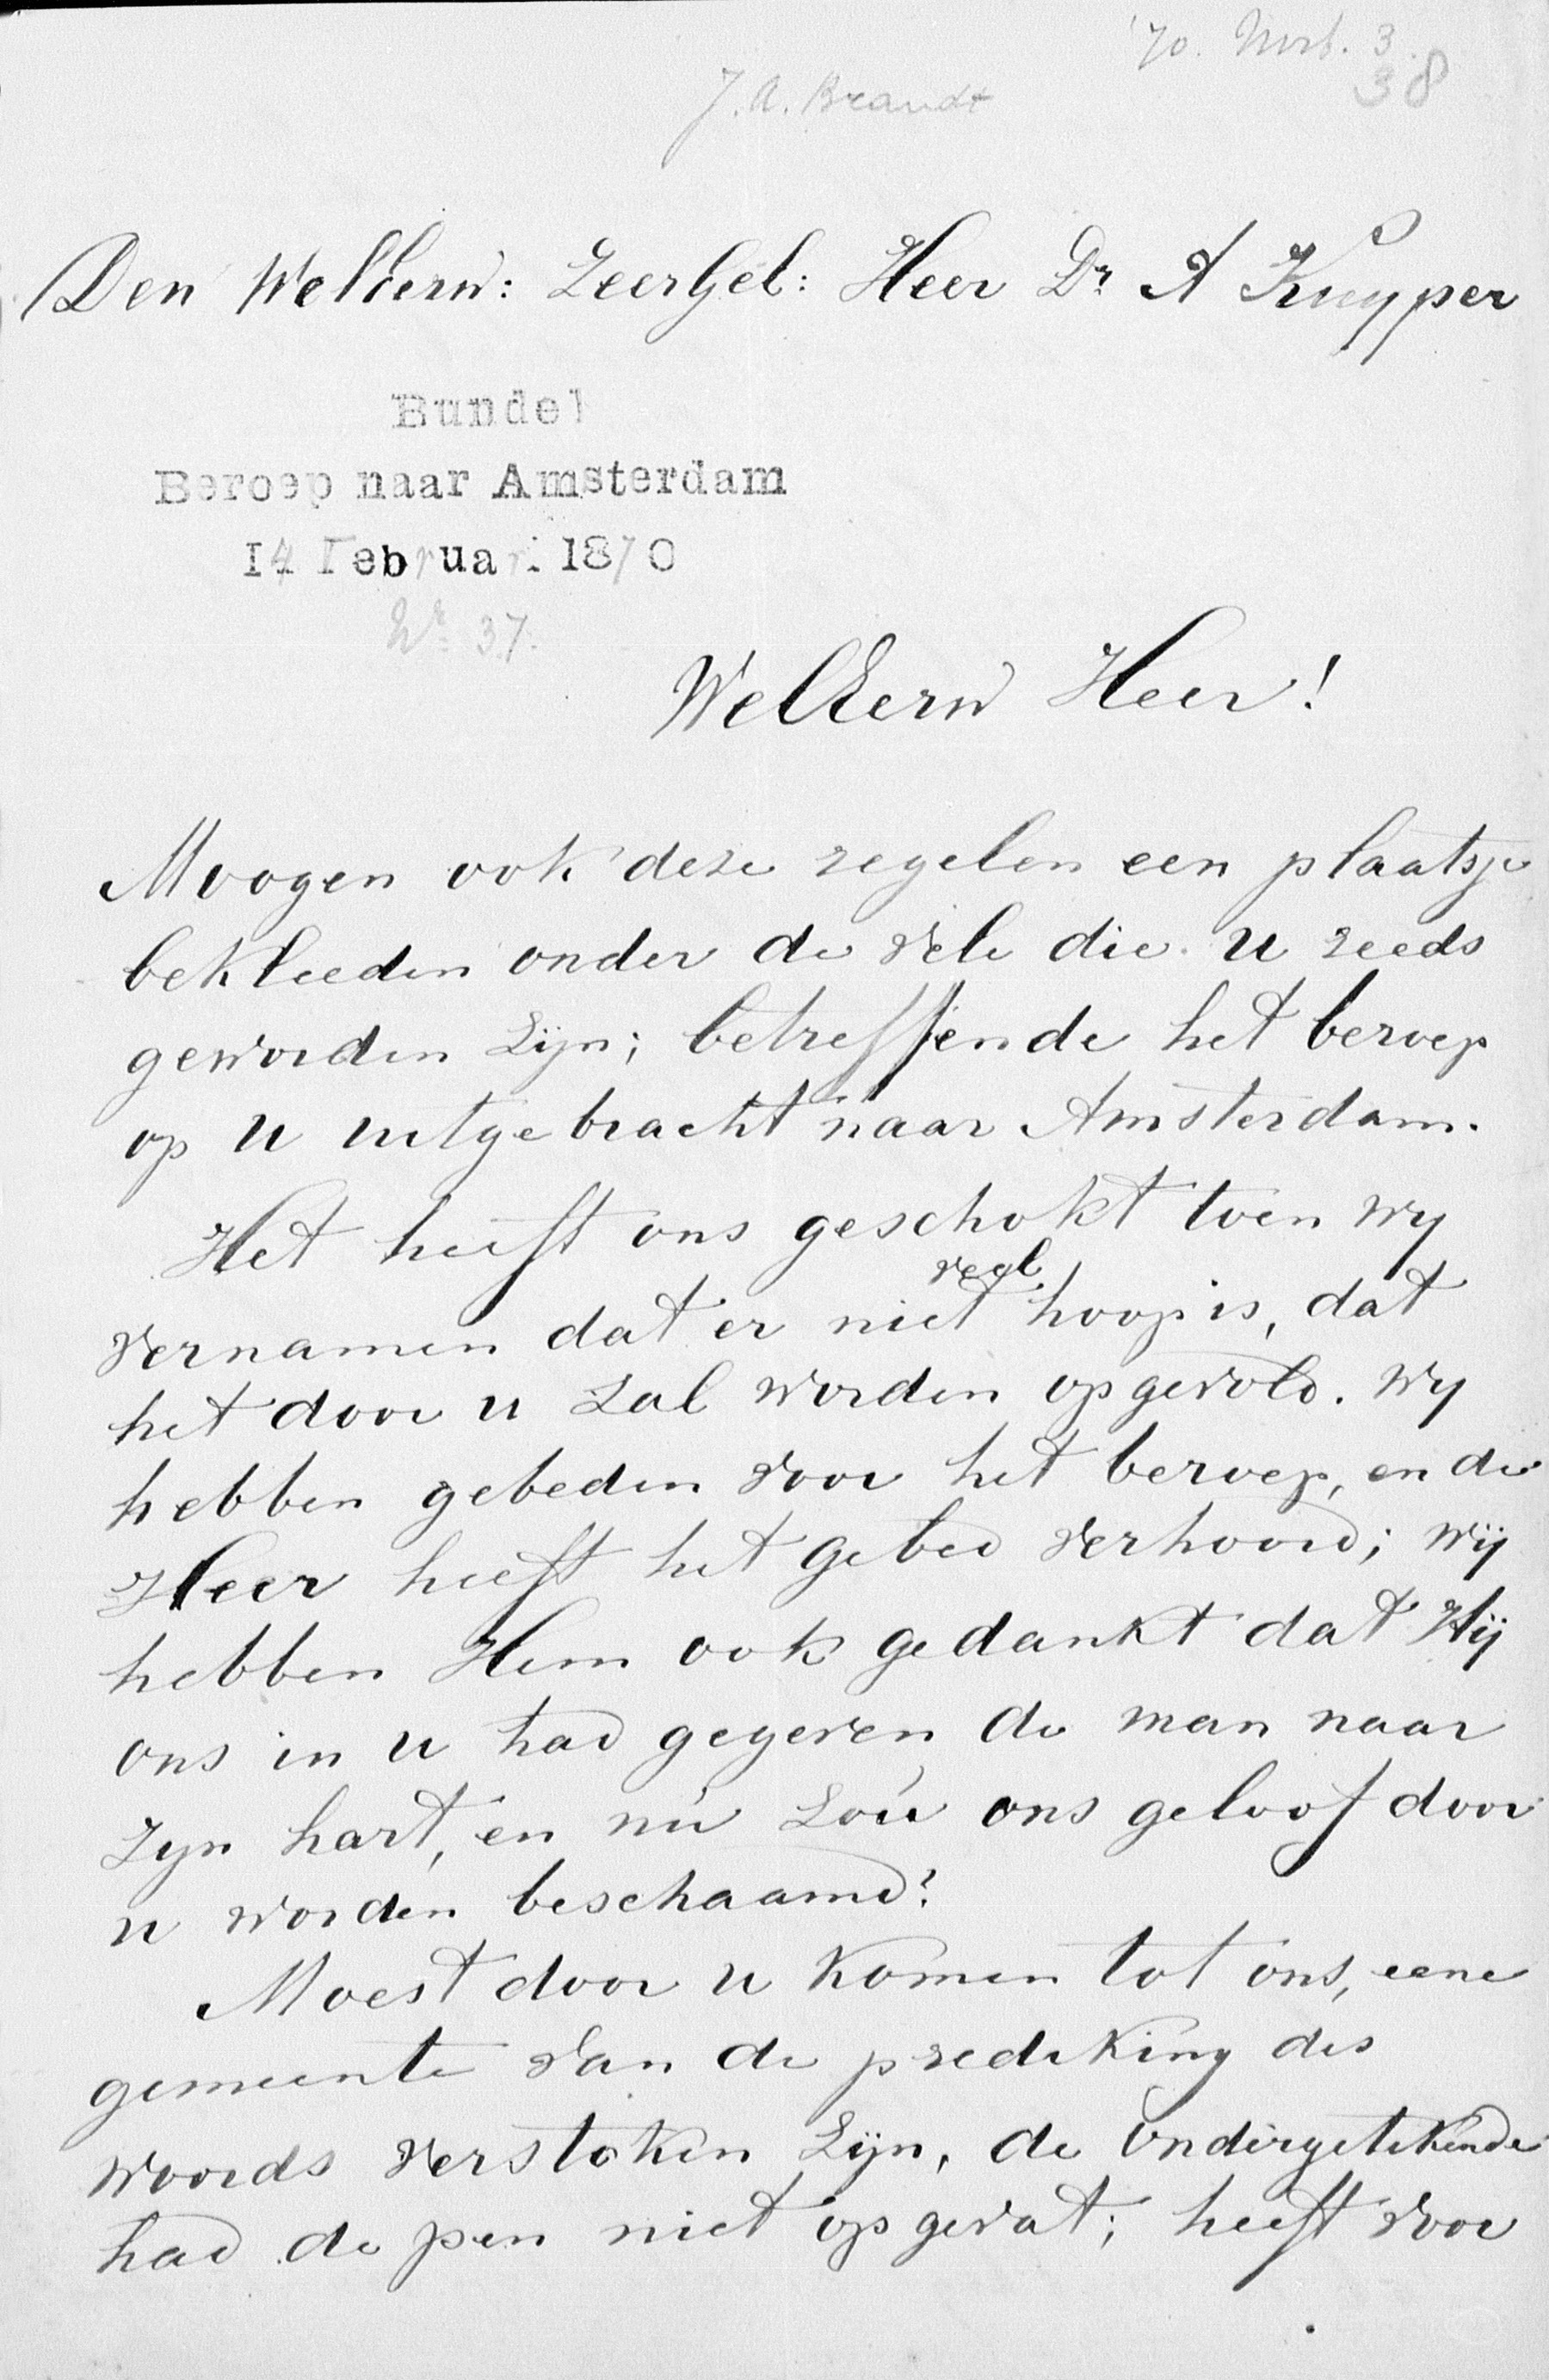 '70. 3.
38
J. A. Brandt
Den WelEerw: LeerGel: Heer Dr A Kuyper
Bundel
Beroep naar Amsterdam
14 Februari 1870
Nr 37.
WelEerw Heer!
Moogen ook deze regelen een plaatsje
bekleeden onder de vele die u reeds
geworden zijn; betreffende het beroep
op u uitgebracht naar Amsterdam.
Het heeft ons geschokt toen wy
vernamen dat er niet veel hoop is, dat
het door u zal worden opgevold. wy
hebben gebeden voor het beroep, en de
Heer heeft het gebed verhoord; wij
hebben Hem ook gedankt dat Hij
ons in u had gegeven de man naar
zyn hart, en nú zoú ons geloof door
u worden beschaamd?
Moest door u komen tot ons, eene
gemeente van de prediking des
woords verstoken zijn, de ondergetekende
had de pen niet opgevat; heeft voor